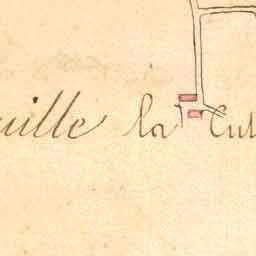 uille la Cul